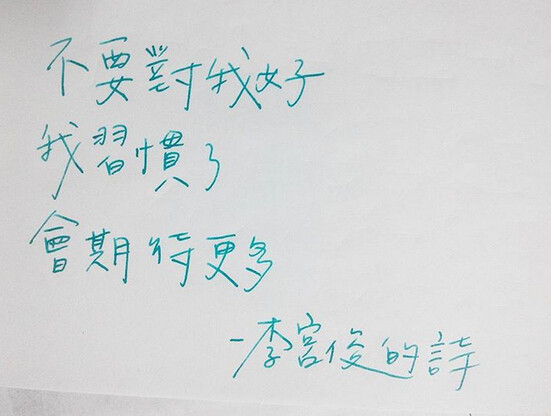 不要對我好
我習慣了
會期待更多
-李宮俊的詩